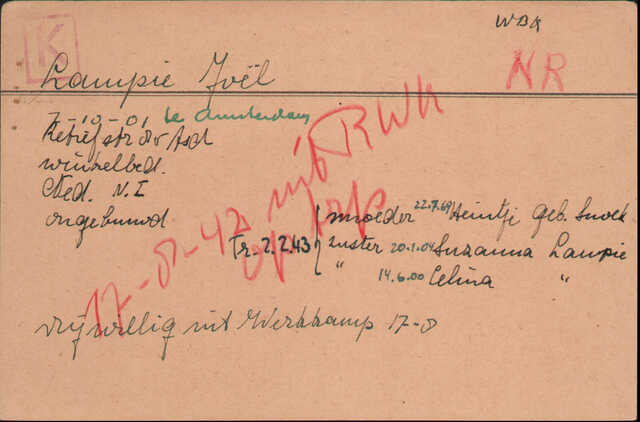 WBK
K
NR
Lampie Joël
7-10-01 te Amsterdam
Retiefstr 8 Asd
winkelbed.
Ned. N.I
ongehuwd
17-8-42 uit RWK
op trsp
Tr. 2.2.43
{ moeder 22.7.69 Heintje geb. Snoek
zuster 20.1.04 Suzanna Lampie
" 14.6.00 Celina "
vrijwillig uit Werkkamp 17-8